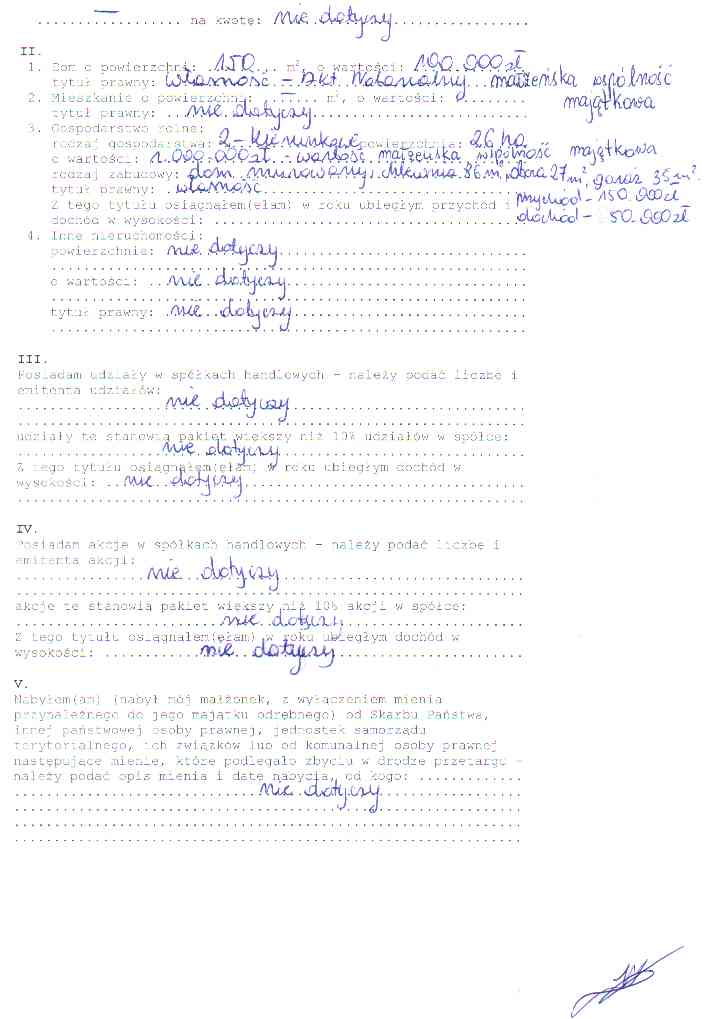 — na kwotę: nie dotyczy
II.
1. Dom o powierzchni: 150 m², o wartości: 100.000 zł
tytuł prawny: własność – Akt Notarialny małżeńska wspólność majątkowa
2. Mieszkanie o powierzchni: m², o wartości:
tytuł prawny: nie dotyczy
3. Gospodarstwo rolne:
rodzaj gospodarstwa: 2 - kierunkowe powierzchnia: 26 ha
o wartości: 1.000.000 zł - wartość małżeńska wspólność majątkowa
rodzaj zabudowy: dom murowany, chlewnia 86 m², obora 27 m², garaż 35 m².
tytuł prawny: własność
Z tego tytułu osiągnąłem(ęłam) w roku ubiegłym przychód i przychód - 150.000 zł
dochód w wysokości: dochód - 50.000 zł
4. Inne nieruchomości:
powierzchnie: nie dotyczy
o wartości: nie dotyczy
tytuł prawny: nie dotyczy
III.
Posiadam udziały w spółkach handlowych – należy podać liczbę i
emitenta udziałów:
nie dotyczy
udziały te stanowią pakiet większy niż 10% udziałów w spółce:
nie dotyczy
Z tego tytułu osiągnąłem(ęłam) w roku ubiegłym dochód w
wysokości: nie dotyczy
IV.
Posiadam akcje w spółkach handlowych – należy podać liczbę i
emitenta akcji:
nie dotyczy
akcje te stanowią pakiet większy niż 10% akcji w spółce:
nie dotyczy
Z tego tytułu osiągnąłem(ęłam) w roku ubiegłym dochód w
wysokości: nie dotyczy
V.
Nabyłem(am) (nabył mój małżonek, z wyłączeniem mienia
przynależnego do jego majątku odrębnego) od Skarbu Państwa,
innej państwowej osoby prawnej, jednostek samorządu
terytorialnego, ich związków lub od komunalnej osoby prawnej
następujące mienie, które podlegało zbyciu w drodze przetargu –
należy podać opis mienia i datę nabycia, od kogo:
nie dotyczy